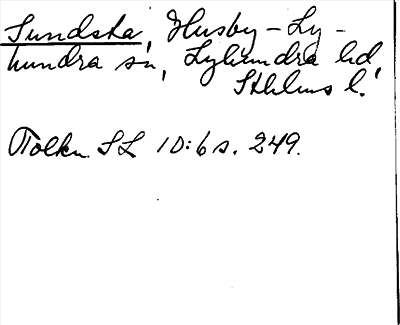 Sundsta, Husby-Ly-
hundra sn, Lyhundra hd,
Sthlms l.
Tolkn. SL 10:6 s. 249.